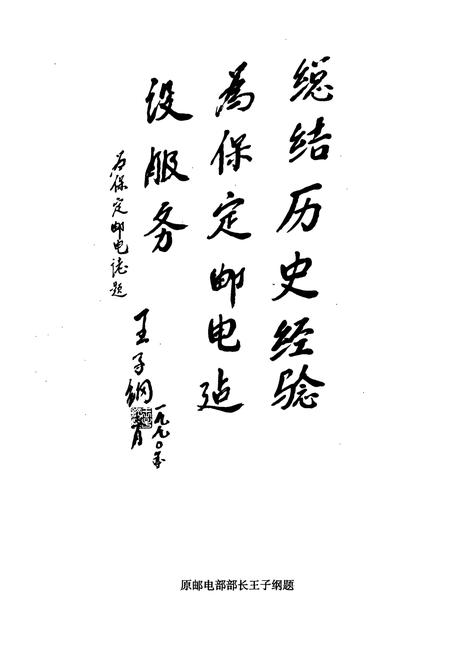 緫结历史经验
為保定邮电建
设服务
为保定邮电志题
王子纲
一九九〇年
原邮电部部长王子纲题